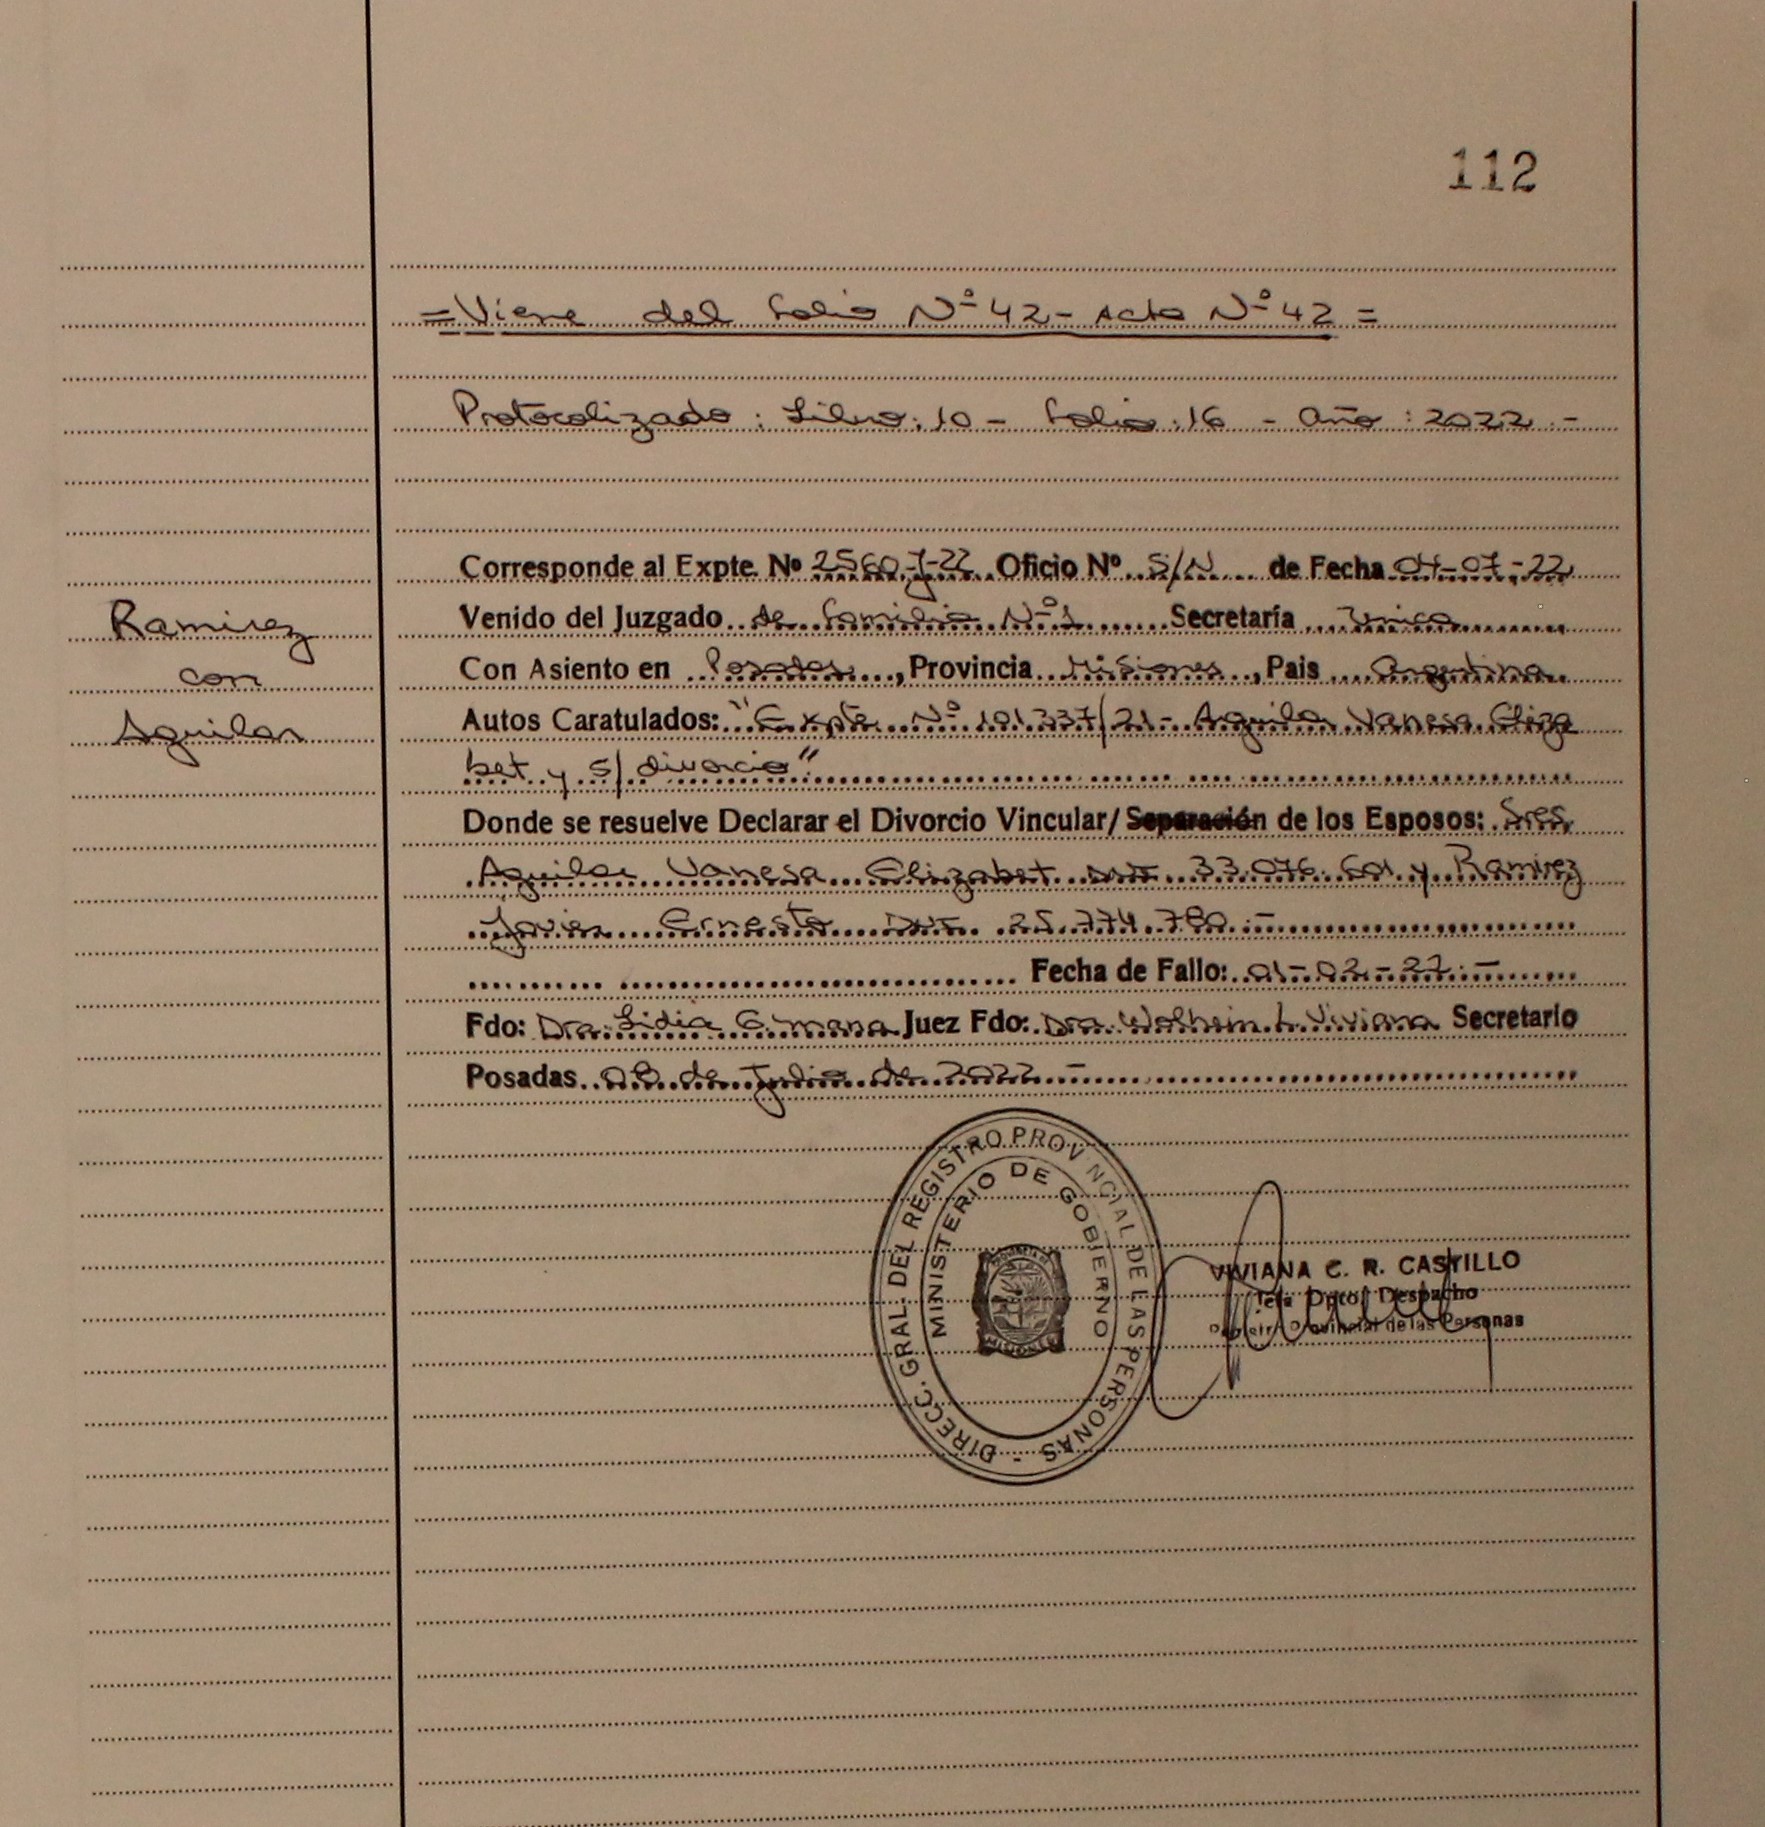 112
= Viene del folio Nº 42 - Acta Nº 42 =
Protocolizado : Libro: 10 - folio: 16 - Año : 2022.-
Corresponde al Expte. Nº 2560-J-22 Oficio Nº S/N de Fecha 04-07-22
Venido del Juzgado de familia Nº 1 Secretaría Unica
Con Asiento en Posadas, Provincia Misiones, Pais Argentina
Autos Caratulados: "Expte Nº 101337/21 - Aguilar Vanesa Eliza
bet y s/ divorcio"
Donde se resuelve Declarar el Divorcio Vincular/ Separación de los Esposos: Sres.
Aguilar Vanesa Elizabet DNI 33.076. y Ramirez
Javier Ernesto DNI 25.774.780.-
Fecha de Fallo: 01-02-22.-
Fdo: Dra. Lidia G. Juez Fdo: Dra. L. Viviana Secretario
Posadas 08 de Julio de 2022.-
Ramirez
con
Aguilar
DIRECC. GRAL. DEL REGISTRO PROVINCIAL DE LAS PERSONAS -
MINISTERIO DE GOBIERNO
VIVIANA C. R. CASTILLO
Jefa Dpto. Despacho
Registro Provincial de las Personas